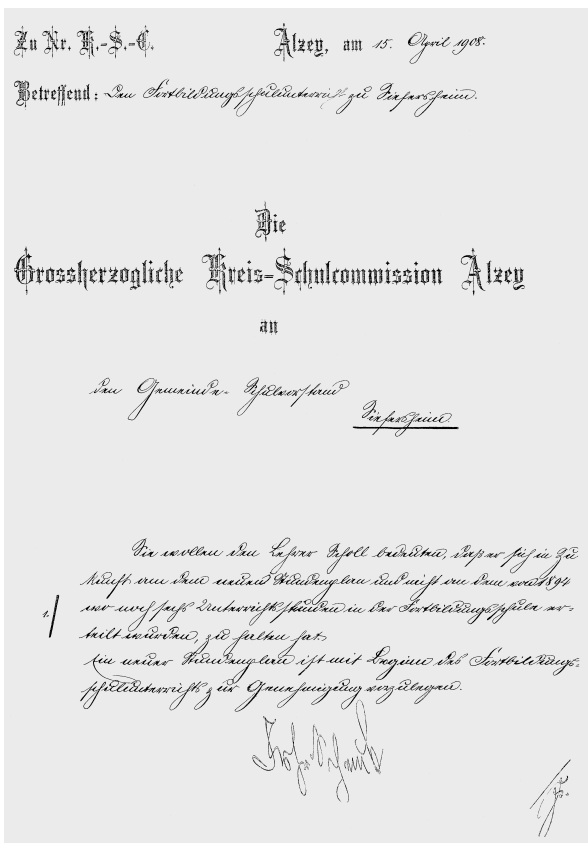 Zu Nr. K.-S.-C. Alzey, am 15. April 1908.
Betreffend: Den Fortbildungsschulunterricht zu Siefersheim.
Die
Grossherzogliche Kreis-Schulcommission Alzey
an
den Gemeinde-Schulvorstand
Siefersheim.
Sie wollen den Lehrer Scholl bedeuten, daß er sich in Zu
kunft an dem neuen Stundenplan und nicht an dem von 1894
1.) wo noch sechs Unterrichtsstunden in der Fortbildungsschule er-
teilt wurden, zu halten hat.
Ein neuer Stundenplan ist mit Beginn des Fortbildungs-
schulunterrichts zur Genehmigung vorzulegen.